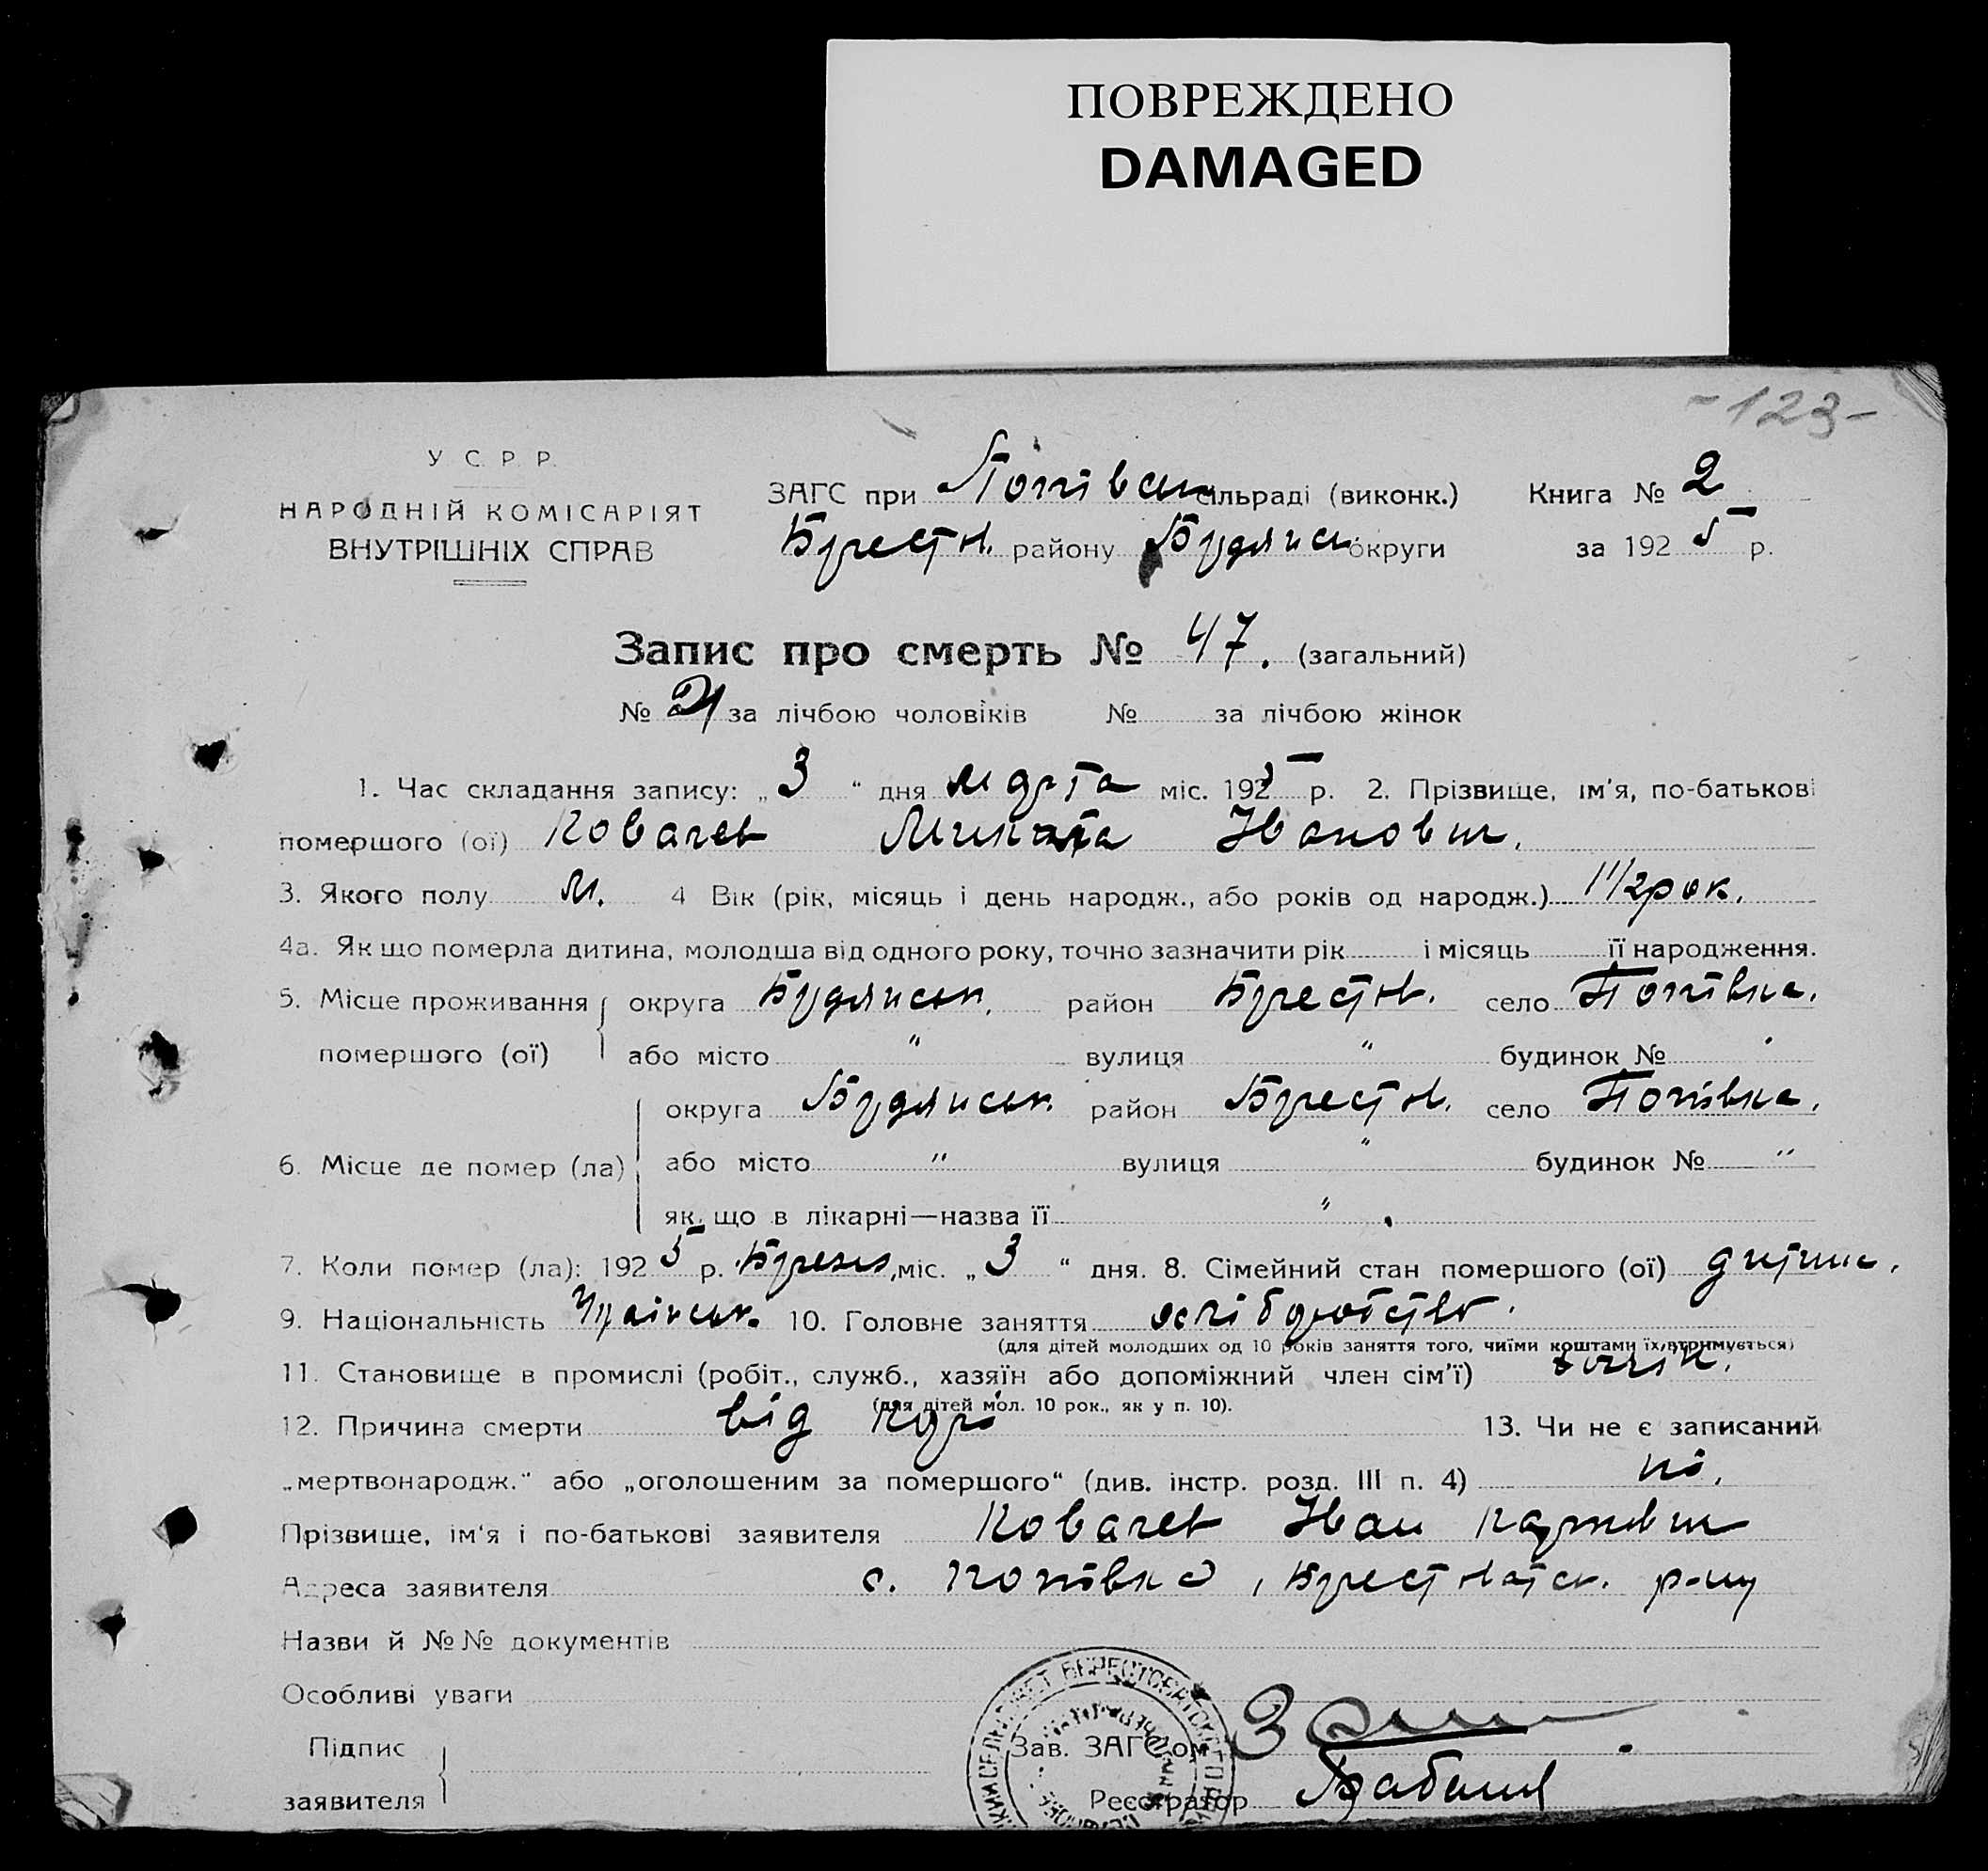 ПОВРЕЖДЕНО
DAMAGED
-123-
У С Р Р.
НАРОДНІЙ КОМІСАРІЯТ
ВНУТРІШНІХ СПРАВ
ЗАГС при Попівськ сільраді (виконк.) Книга № 2
Берестов. району округи за 1925 р.
Запис про смерть № 47. (загальний)
№ 21 за лічбою чоловіків № за лічбою жінок
1. Час складання запису: „3“ дня марта міс. 1925 р. 2. Прізвище, ім'я, по-батькові
помершого (ої) Ковачев Микита Іванович.
3. Якого полу м. 4 Вік (рік, місяць і день народж., або років од народж.) 1 1/2 рок.
4а. Як що померла дитина, молодша від одного року, точно зазначити рік і місяць її народження.
5. Місце проживання округа район Берестов. село Попівка.
помершого (ої) або місто " вулиця " будинок №
округа район Берестов. село Попівка.
6. Місце де помер (ла) або місто " вулиця " будинок № "
як що в лікарні—назва її "
7. Коли помер (ла): 1925 р. Березня, міс. „3“ дня. 8. Сімейний стан помершого (ої) дитина.
9. Національність 10. Головне заняття хліборобство.
(для дітей молодших од 10 років заняття того, чиїми коштами їх утримується)
11. Становище в промислі (робіт., служб., хазяїн або допоміжний член сім'ї)
(для дітей мол. 10 рок., як у п. 10).
12. Причина смерти від корі 13. Чи не є записаний
„мертвонародж.“ або „оголошеним за помершого“ (див. інстр. розд. III п. 4) ні.
Прізвище, ім'я і по-батькові заявителя Ковачев Іван Карпович
Адреса заявителя с. Попівка, Берестоватськ. р-ну
Назви й №№ документів
Особливі уваги
Підпис
заявителя
Зав. ЗАГСом
Реєстратор